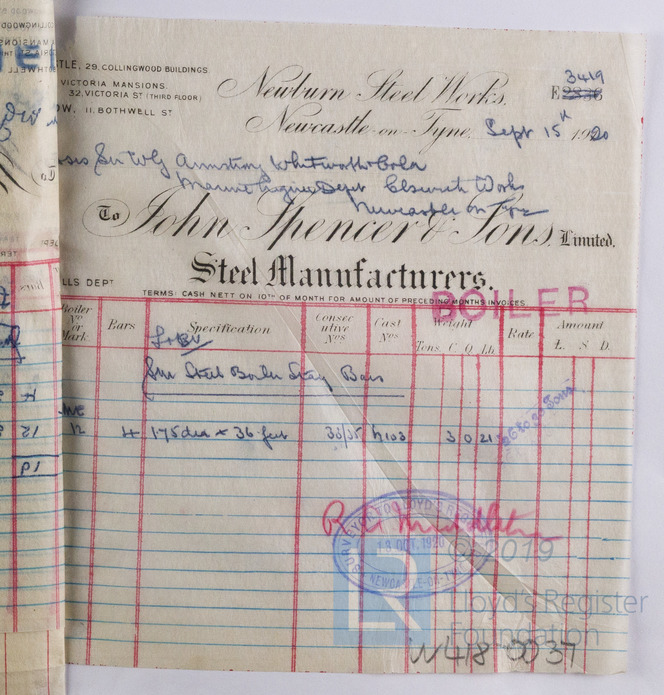 TLE, 29. COLLINGWOOD BUILDINGS
VICTORIA MANSIONS.
32, VICTORIA ST (THIRD FLOOR)
OW, 11. BOTHWELL ST
Newburn Steel Works,
3419
E
Newcastle-on-Tyne, Sept 15th 1920
Sir WG Armstrong Whitworth & Co Ld
Marine Engine Dept Elswick Works
Newcastle on Tyne
To John Spencer & Sons, Limited.
Steel Manufacturers.
LLS DEPT
TERMS: CASH NETT ON 10TH OF MONTH FOR AMOUNT OF PRECEDING MONTHS INVOICES.
BOILER
Boiler No or Mark Bars Specification Consecutive Nos Cast Nos Weight Rate Amount
Tons. C Q Lb £. S D.
Steel Boiler Stay Bars
12 4 175 dia x 36 feet 33/35 3 0 21
SURVEYOR TO LLOYD'S REGISTER
18 OCT. 1920
NEWCASTLE-ON-TYNE
© 2019
LR
Lloyd's Register
Foundation
W418 0037